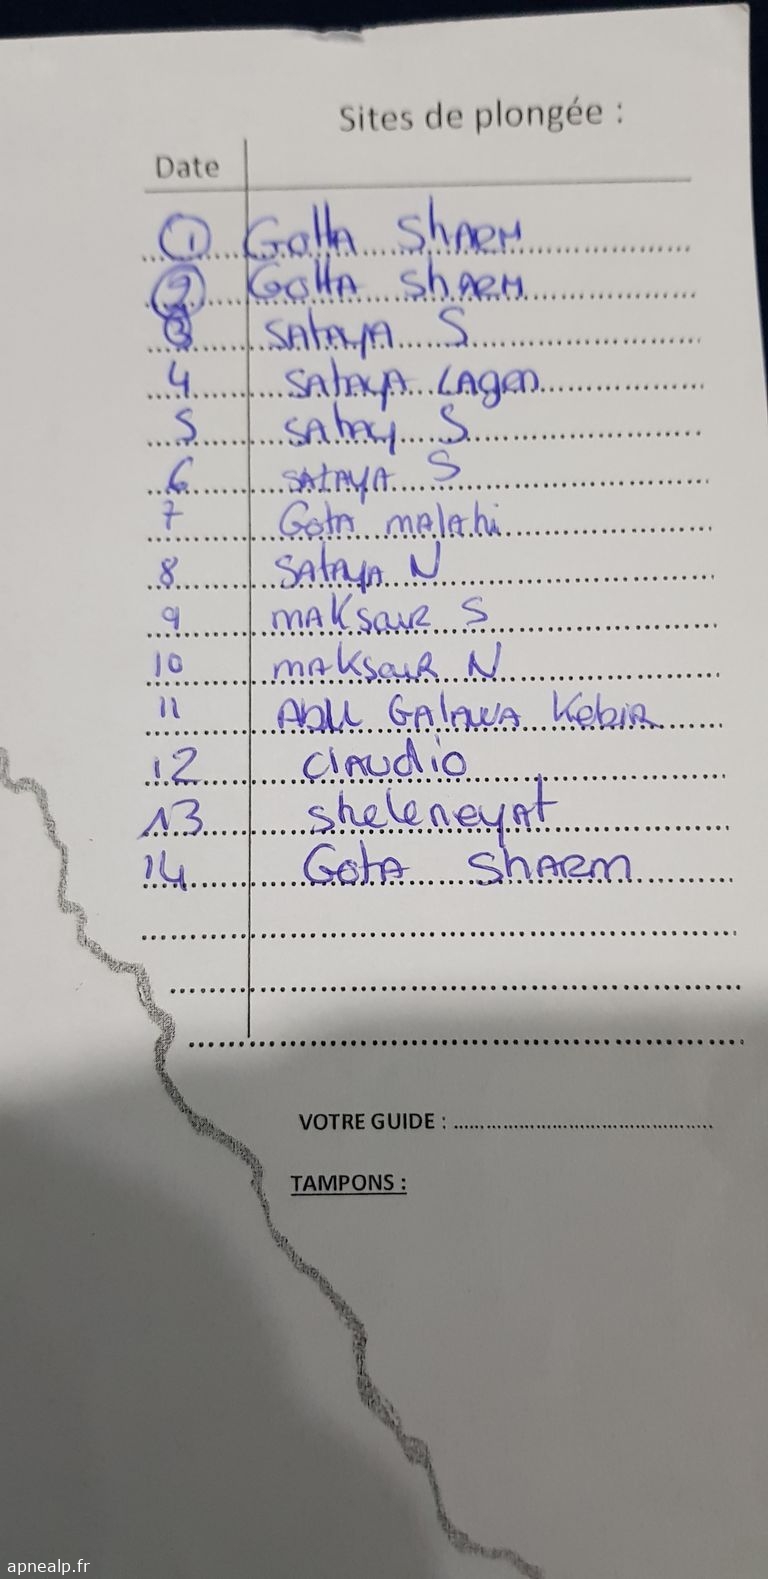 Sites de plongée :
Date
1 Gotta ShARM
2 Gotta ShARM
3 SAtAyA S
4 SAtAyA LAgon
5 SAtAy S
6 SAtAyA S
7 GotA mAlAhi
8 SAtAyA N
9 mAKSouR S
10 mAKSouR N
11 Abu GAlAwA KebiR
12 ClAudio
13 SheleneyAt
14 GotA ShARm
VOTRE GUIDE :
TAMPONS :
apnealp.fr